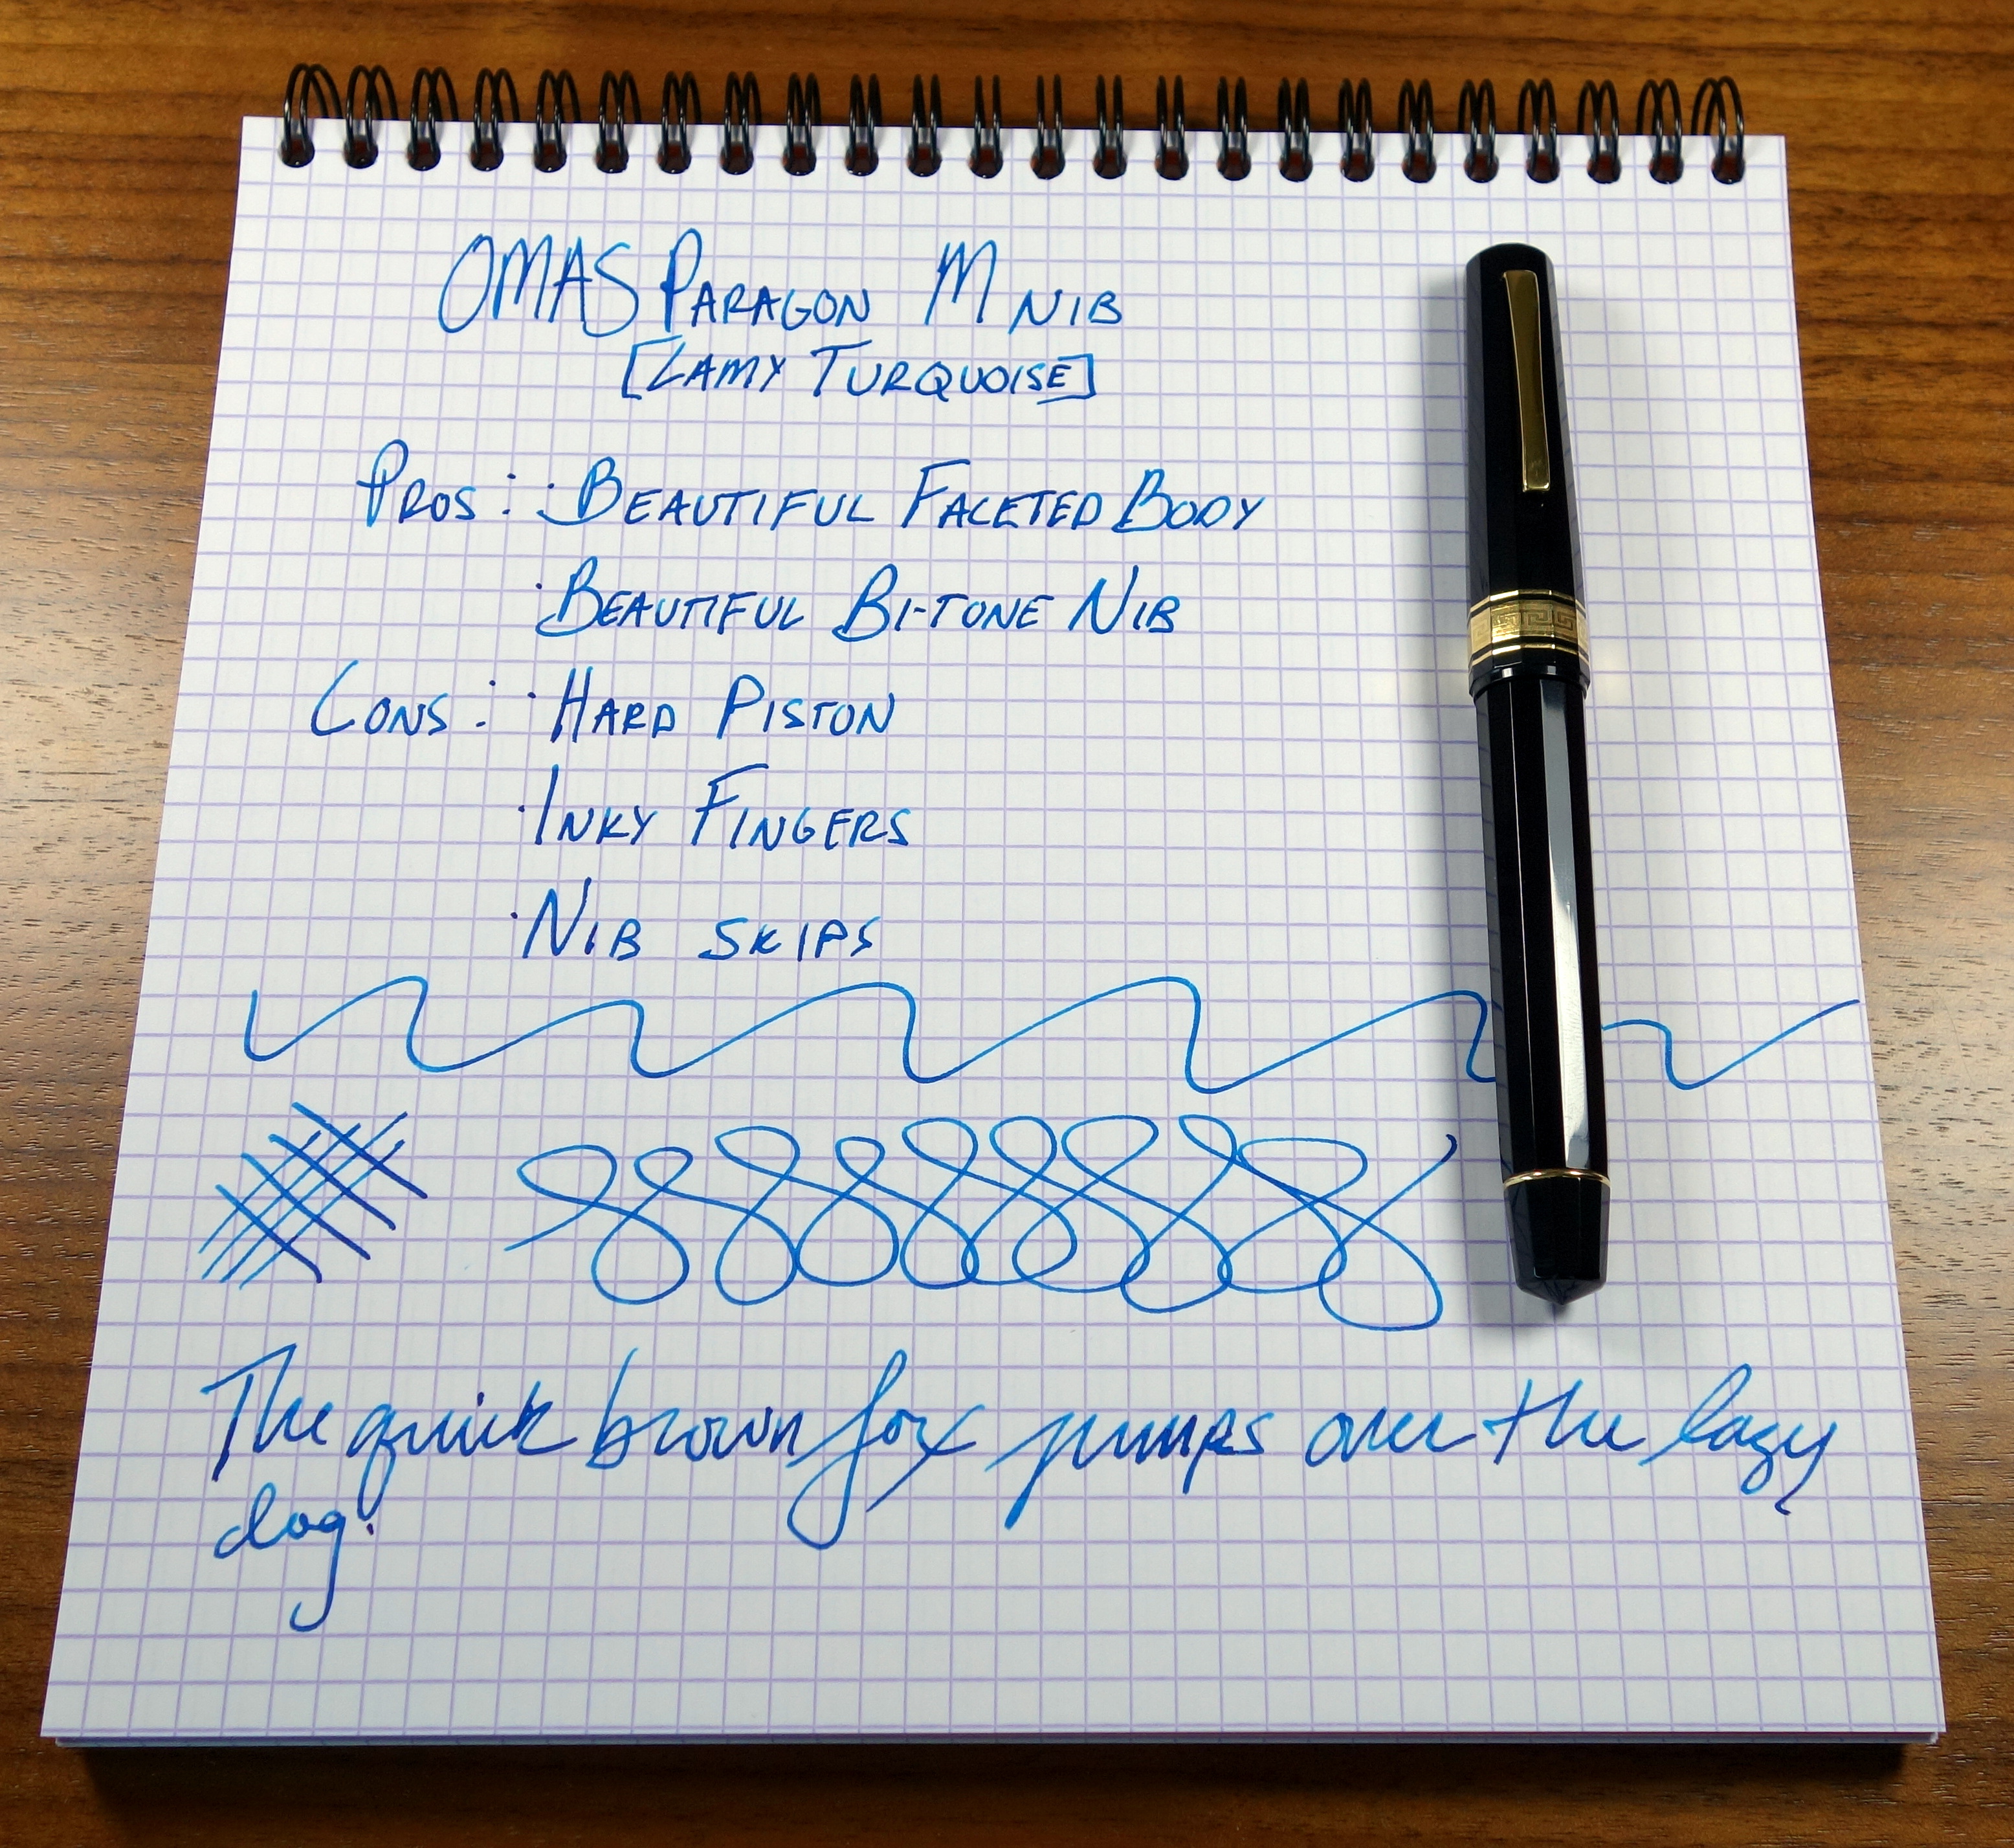 OMAS PARAGON M NIB
[LAMY TURQUOISE]
PROS: · BEAUTIFUL FACETED BODY
· BEAUTIFUL BI-TONE NIB
CONS: · HARD PISTON
· INKY FINGERS
· NIB SKIPS
The quick brown fox jumps over the lazy
dog.